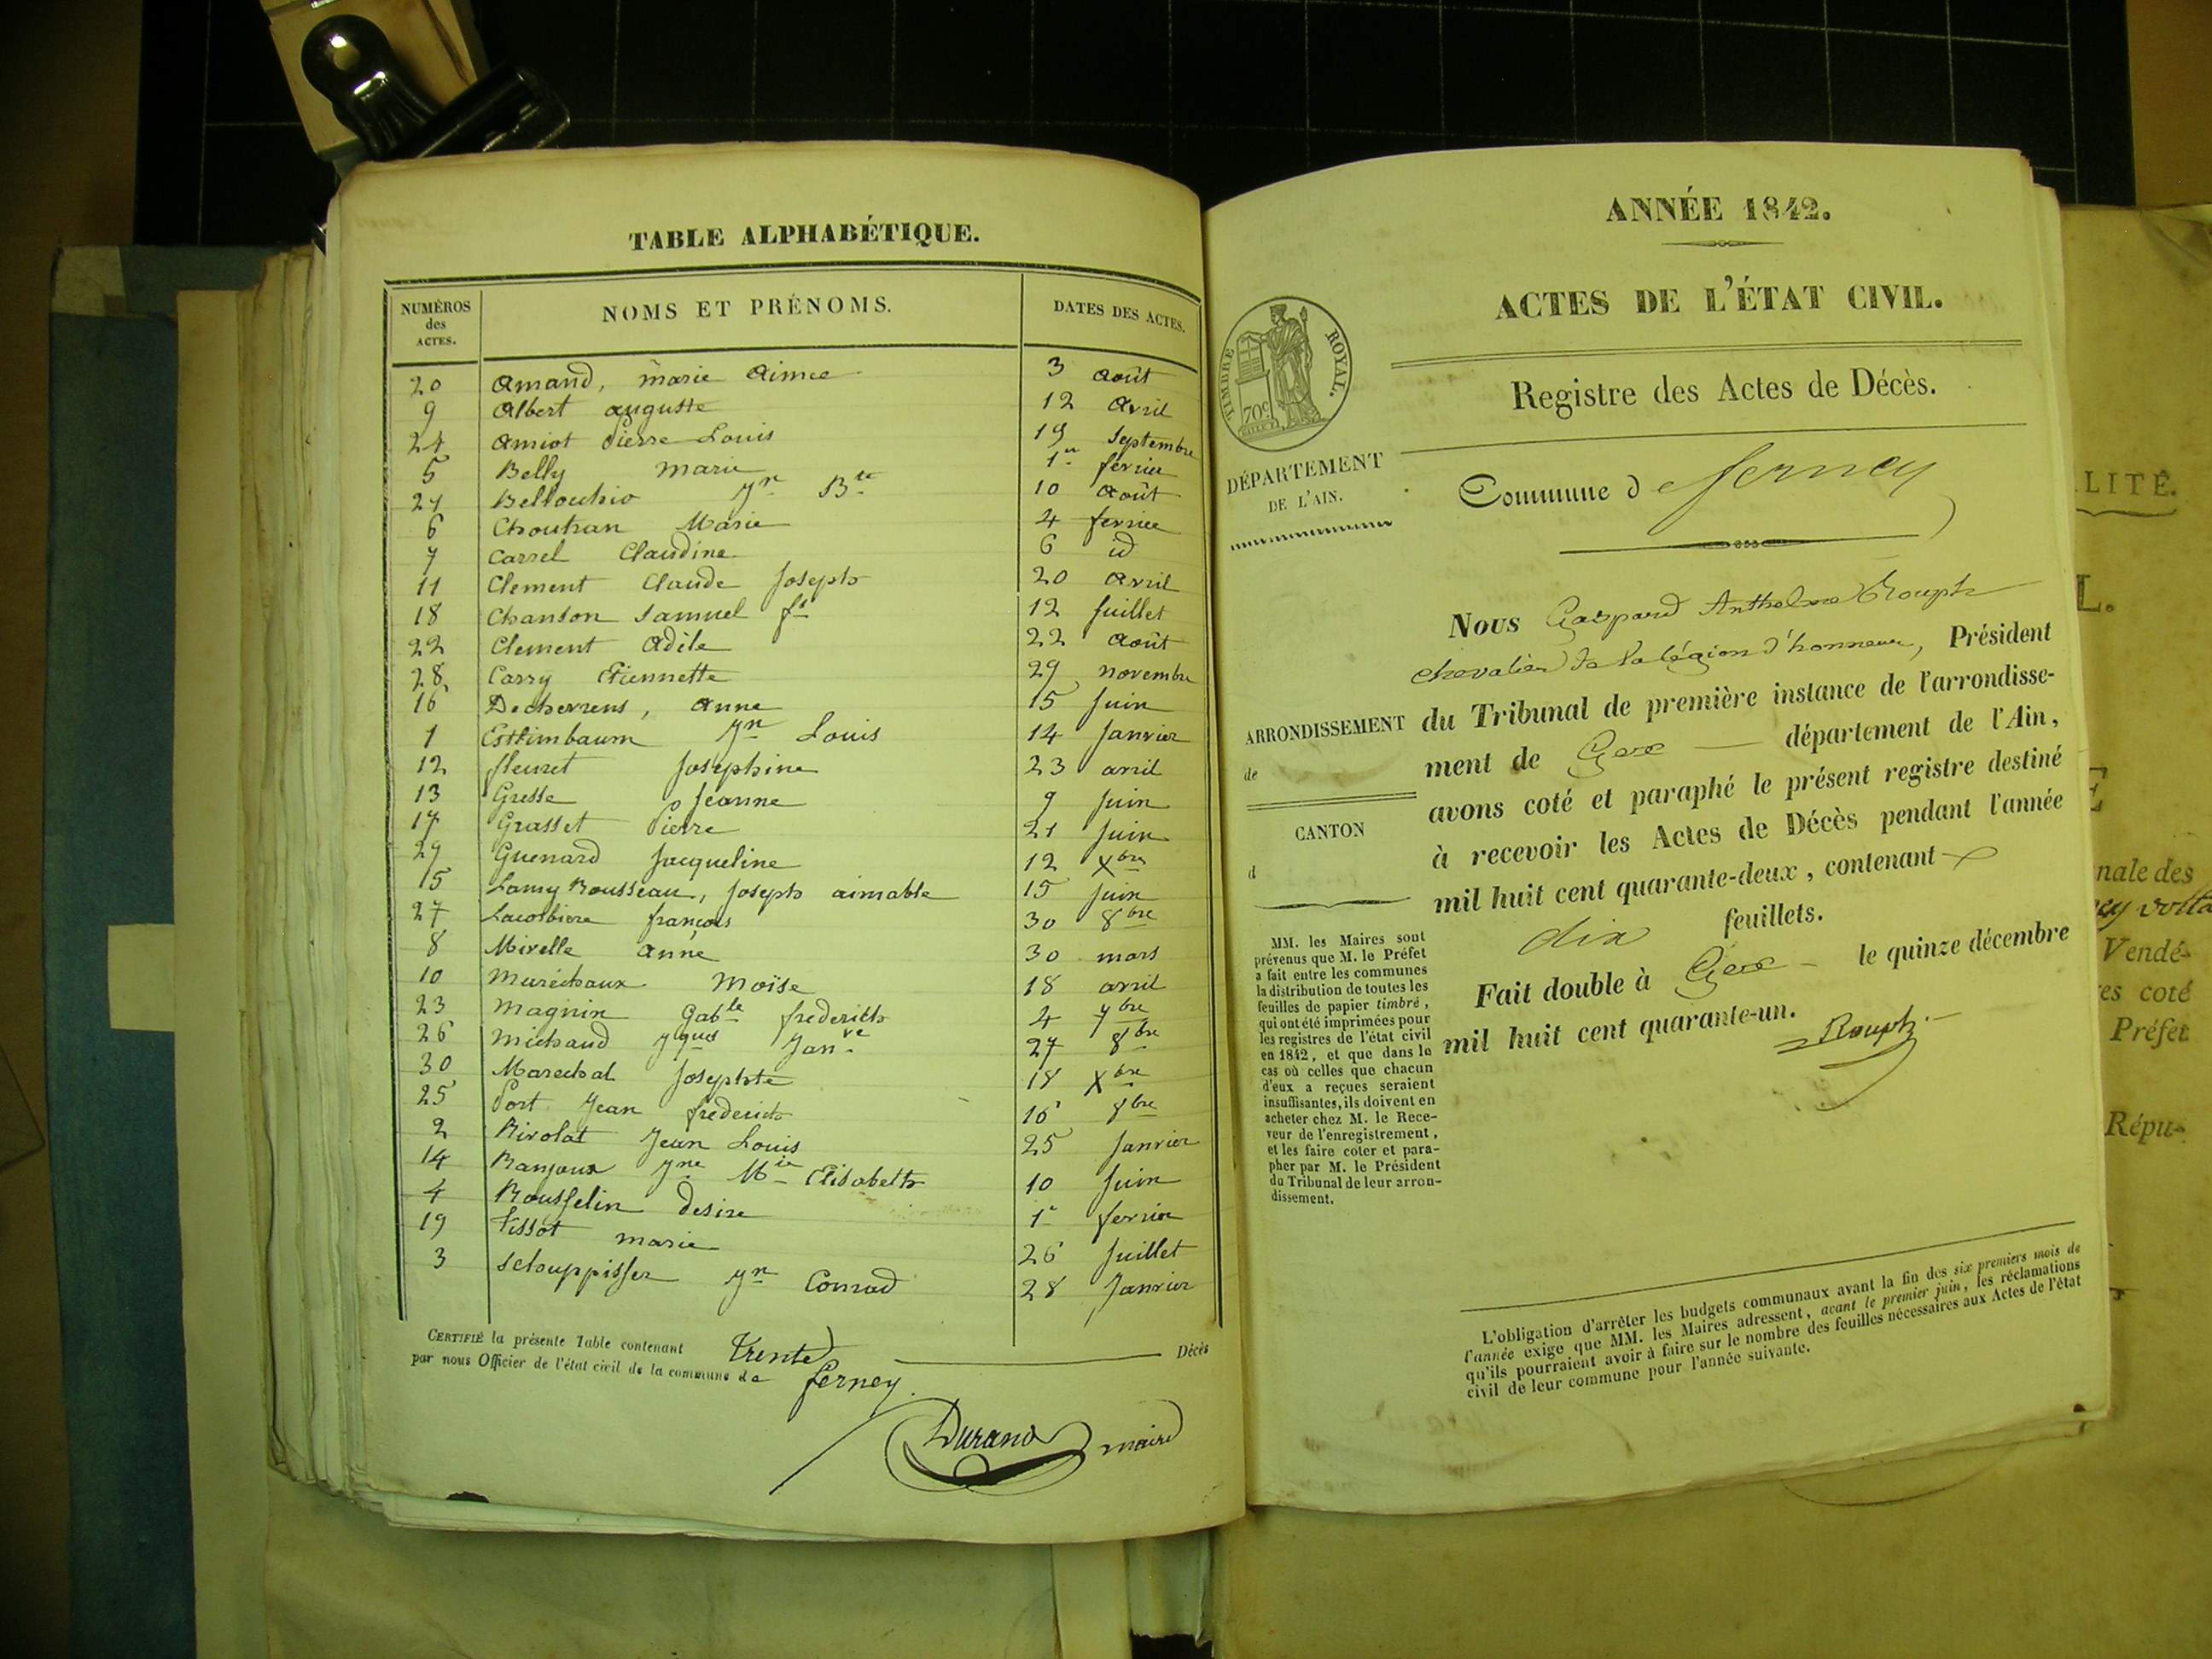 TABLE ALPHABÉTIQUE.
NUMÉROS des ACTES. NOMS ET PRÉNOMS. DATES DES ACTES.
20 Amand, marie Aimee 3 Août
9 Albert auguste 12 Avril
24 Amiot Pierre Louis 19 Septembre
5 Belly marie 1er février
21 10 Août
6 Marie 4 fevrier
7 Carrel Claudine 6 id
11 Clement Claude Joseph 20 Avril
18 Chanson Samuel fs 12 Juillet
22 Clement Adèle 22 Août
28 Carry Etiennette 29 novembre
16 Decherrens, Anne 15 Juin
1 Esttimbaum Jn Louis 14 Janvier
12 fleuret Josephine 23 avril
13 Gresse Jeanne 9 Juin
17 Grasset Pierre 21 Juin
29 Guenard Jacqueline 12 Xbre
15 Lamy Rousseau, Joseph aimable 15 Juin
27 Lacorbiere françois 30 8bre
8 Mirelle anne 30 mars
10 Maréchaux Moïse 18 avril
23 Magnin Gable frederich 4 7bre
26 Michaud Jques 27 8bre
30 Marechal Josephte 18 Xbre
25 Port Jean frederich 16 8bre
2 Rivolat Jean Louis 25 Janvier
14 Ranjoux Jne Mie Elisabeth 10 Juin
4 Rousselin desire 1er fevrier
19 Tissot marie 26 Juillet
3 Schuppisser Jn Conrad 28 Janvier
CERTIFIÉ la présente Table contenant Trente Décès
par nous Officier de l'état civil de la commune de ferney.
Durand maire
ANNÉE 1842.
ACTES DE L'ÉTAT CIVIL.
TIMBRE ROYAL.
70c
Registre des Actes de Décès.
DÉPARTEMENT
DE L'AIN.
Commune de ferney
Nous Gaspard Anthelme Rouph
chevalier de la légion d'honneur, Président
ARRONDISSEMENT
de
du Tribunal de première instance de l'arrondisse-
ment de Gex département de l'Ain,
avons coté et paraphé le présent registre destiné
CANTON
d
à recevoir les Actes de Décès pendant l'année
mil huit cent quarante-deux, contenant
dix feuillets.
Fait double à Gex le quinze décembre
mil huit cent quarante-un.
Rouph
MM. les Maires sont
prévenus que M. le Préfet
a fait entre les communes
la distribution de toutes les
feuilles de papier timbré,
qui ont été imprimées pour
les registres de l'état civil
en 1842, et que dans le
cas où celles que chacun
d'eux a reçues seraient
insuffisantes, ils doivent en
acheter chez M. le Rece-
veur de l'enregistrement,
et les faire coter et para-
pher par M. le Président
du Tribunal de leur arron-
dissement.
L'obligation d'arrêter les budgets communaux avant la fin des six premiers mois de
l'année exige que MM. les Maires adressent, avant le premier juin, les réclamations
qu'ils pourraient avoir à faire sur le nombre des feuilles nécessaires aux Actes de l'état
civil de leur commune pour l'année suivante.
LITÉ.
L.
E
nale des
Vendé-
es coté
Préfet
Répu-